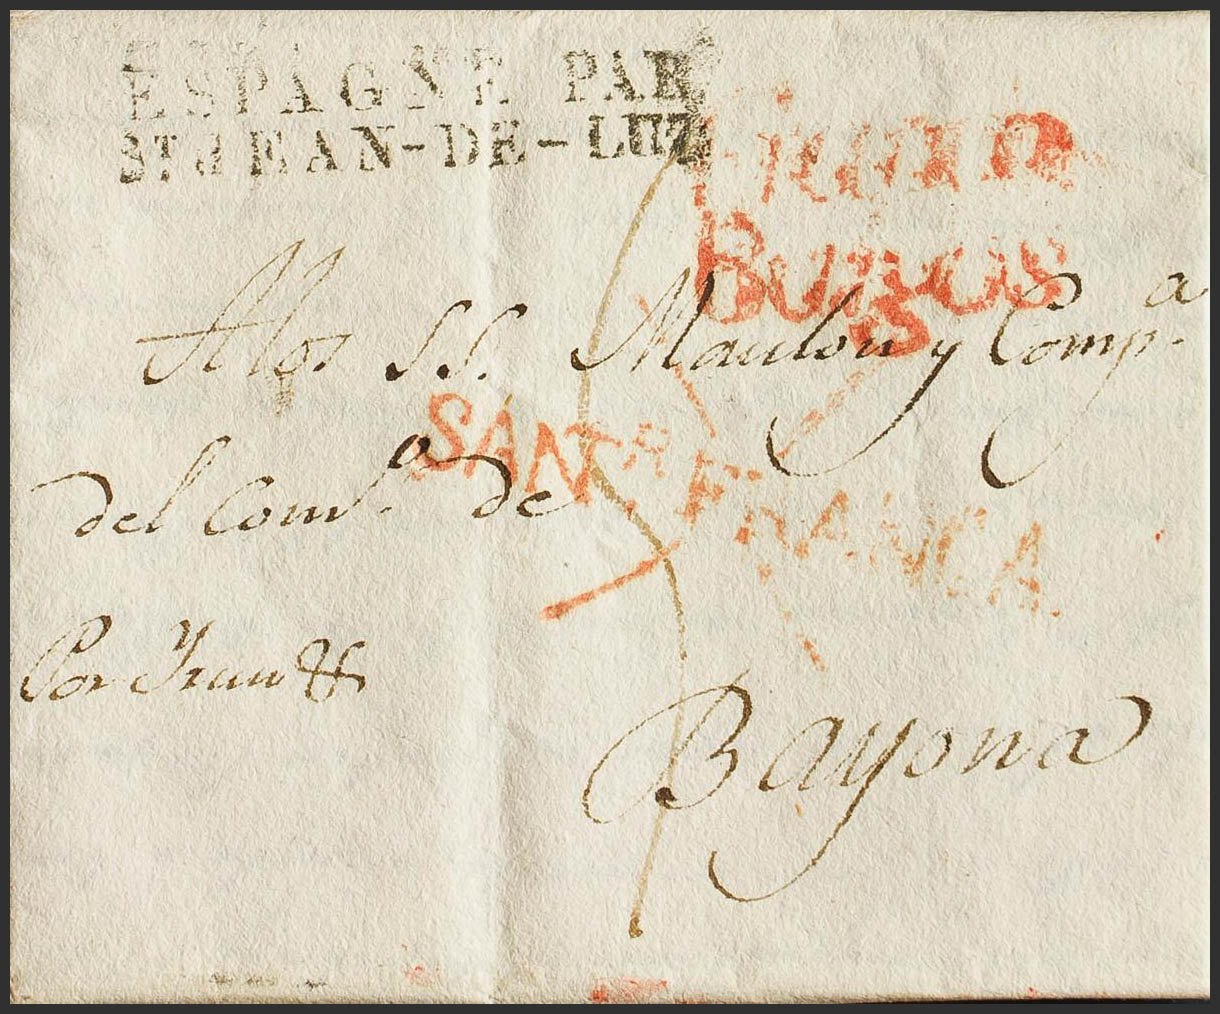 ESPAGNE PAR
ST JEAN-DE-LUZ
BURGOS
A los SS. Maulon y Comp.ª
SANTANDER
FRANCA
del Com.º de
Por Irun &
Bayona